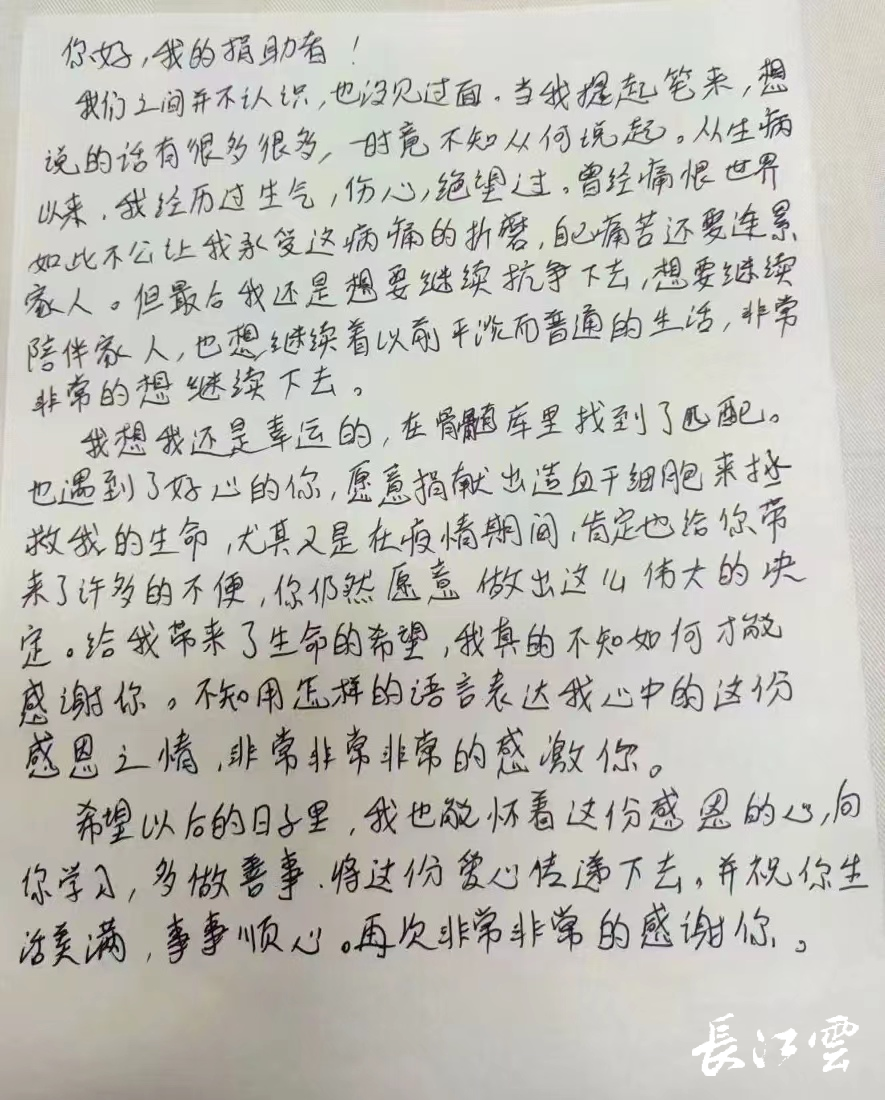 你好，我的捐助者！
我们之间并不认识，也没见过面。当我提起笔来，想
说的话有很多很多，一时竟不知从何说起。从生病
以来，我经历过生气，伤心，绝望过。曾经痛恨世界
如此不公让我承受这病痛的折磨，自己痛苦还要连累
家人。但最后我还是想要继续抗争下去，想要继续
陪伴家人，也想继续着以前平淡而普通的生活，非常
非常的想继续下去。
我想我还是幸运的，在骨髓库里找到了匹配。
也遇到了好心的你，愿意捐献出造血干细胞来拯
救我的生命，尤其又是在疫情期间，肯定也给你带
来了许多的不便，你仍然愿意做出这么伟大的决
定。给我带来了生命的希望，我真的不知如何才能
感谢你。不知用怎样的语言表达我心中的这份
感恩之情，非常非常非常的感激你。
希望以后的日子里，我也能怀着这份感恩的心，向
你学习，多做善事，将这份爱心传递下去。并祝你生
活美满，事事顺心。再次非常非常的感谢你。
長江雲